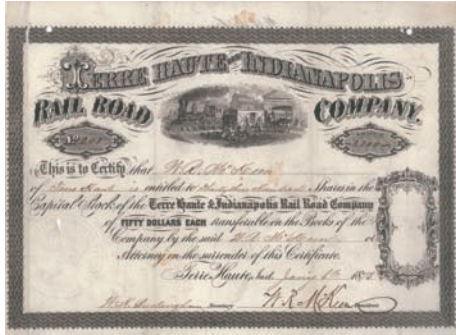 TERRE HAUTE AND INDIANAPOLIS
RAIL ROAD COMPANY.
This is to Certify that W.R. McKeen
of Terre Haute is entitled to Shares in the
Capital Stock of the Terre Haute & Indianapolis Rail Road Company
of FIFTY DOLLARS EACH transferable on the Books of the
Company by the said W.R. McKeen or
Attorney on the surrender of this Certificate.
Terre Haute, Ind. June 6th 187
Secretary W.R. McKeen President